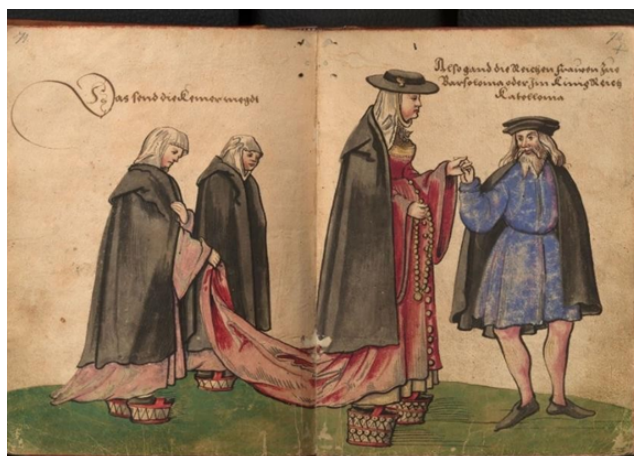 Das send die Kemer megdt
Also gand die Reichen frauwen zue
Barsoloma oder jm Kunig Reich
Katolloma